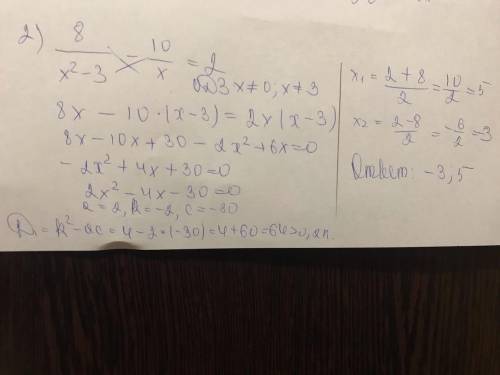 2) 8/(x²-3) - 10/x = 2
ОДЗ x≠0, x≠3
8x - 10·(x-3) = 2x(x-3)
8x-10x+30-2x²+6x=0
-2x²+4x+30=0
2x²-4x-30=0
a=2, k=-2, c=-30
D₁=k²-ac=4-2·(-30)=4+60=64>0, 2к.
x₁ = (2+8)/2 = 10/2 = 5
x₂ = (2-8)/2 = -6/2 = -3
Ответ: -3; 5